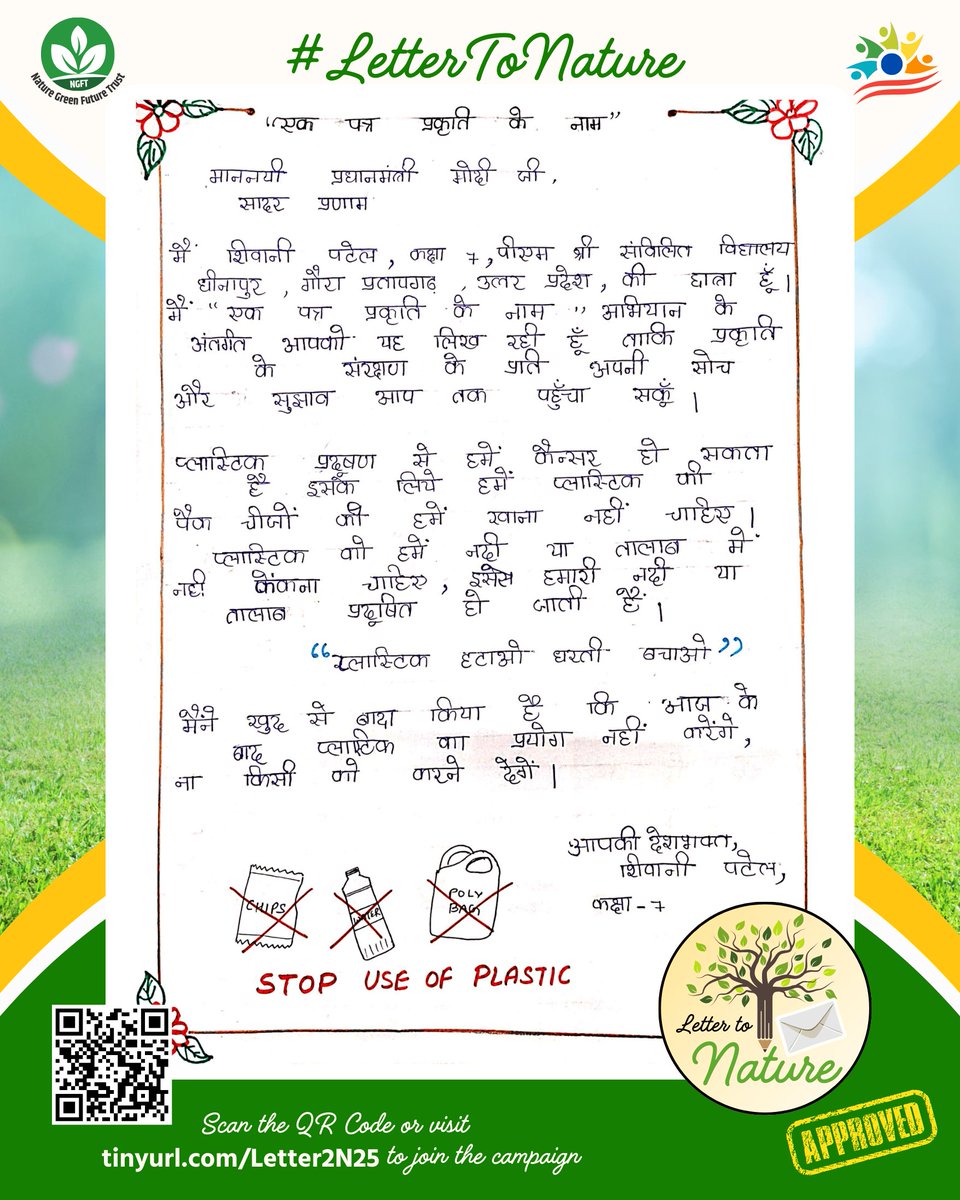 NGFT
Nature Green Future Trust
#LetterToNature
"एक पत्र प्रकृति के नाम"
माननयी प्रधानमंत्री मोदी जी,
सादर प्रणाम
मैं शिवानी पटेल, कक्षा 7, पीएम श्री संविलित विद्यालय
धीनापुर, गौरा प्रतापगढ़, उत्तर प्रदेश, की छात्रा हूँ।
मैं "एक पत्र प्रकृति के नाम" अभियान के
अंतर्गत आपको यह लिख रही हूँ ताकि प्रकृति
के संरक्षण के प्रति अपनी सोच
और सुझाव आप तक पहुँचा सकूँ।
प्लास्टिक प्रदूषण से हमें कैन्सर हो सकता
है इसके लिये हमें प्लास्टिक की
पैक चीजों को हमें खाना नहीं चाहिए।
प्लास्टिक को हमें नदी या तालाब में
नही फेंकना चाहिए, इससे हमारी नदी या
तालाब प्रदूषित हो जाती हैं।
"प्लास्टिक हटाओ धरती बचाओ"
मैंने खुद से वादा किया है कि आज के
बाद प्लास्टिक का प्रयोग नहीं करेंगे,
ना किसी को करने देगें।
आपकी देशभक्त,
शिवानी पटेल,
कक्षा - 7
CHIPS
WATER
POLY
BAG
STOP USE OF PLASTIC
Letter to
Nature
Scan the QR Code or visit
tinyurl.com/Letter2N25 to join the campaign
APPROVED